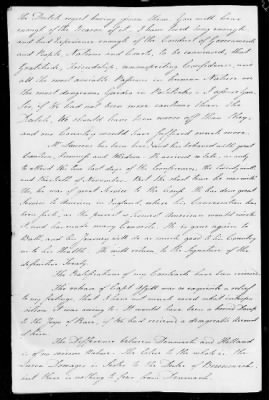 the Dutch regret having given them. You will hear
enough of the Reason of it. I have lived long enough
and had experience enough of the Conduct of Governments
and People, Nations and Courts, to be convinced, that
Gratitude, Friendship, unsuspecting Confidence, and
all the most amiable Passions in human Nature are
the most dangerous Guides in Politicks. I assure you
Sir, if We had not been more cautious than the
Dutch, We should have been worse off than they,
and our Country would have suffered much more.
Mr. Laurens has been here, and has behaved with great
Caution, Firmness and Wisdom. He arrived so late, as only
to attend the two last days of the Conferences, the twenty ninth
and thirtieth of November. But the short time he was with
Us, he was of great Service to the Cause. He has done great
Service to America in England, where his Conversation has
been such, as the purest and firmest American would wish
it, and has made many Converts. He is gone again to
Bath, and his Journey will do as much good to his Country
as to his Health. He will return to the Signature of the
definitive Treaty.
The Ratifications of my Contracts have been received.
The release of Capt. Asgill was so exquisite a relief
to my feelings, that I have not much cared what interpo-
sition it was owing to. It would have been a horrid Damp
to the Joys of Peace, if We had received a disagreable account
of him.
The Differences between Denmark and Holland
is of no serious Nature. The Color to the whole is the
Queen Dowager is Sister to the Duke of Brunswick.
but there is nothing to fear from Denmark.